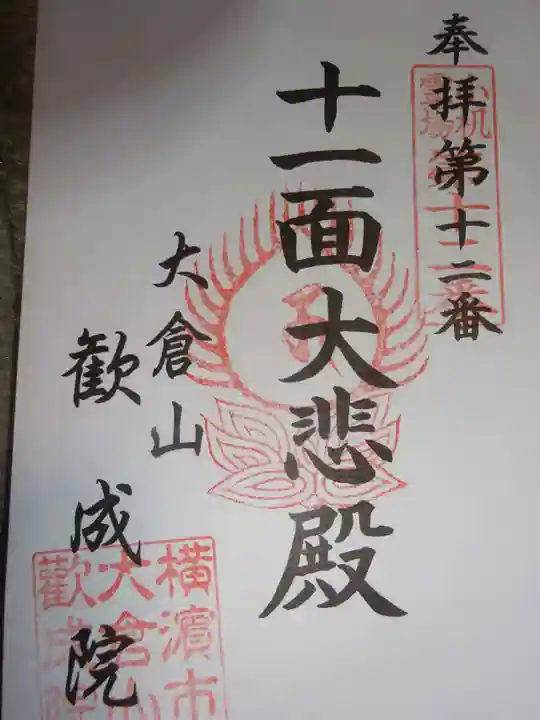 奉拝第十二番
十一面大悲殿
大倉山
歓成院
横濱市
大倉山
歡成院